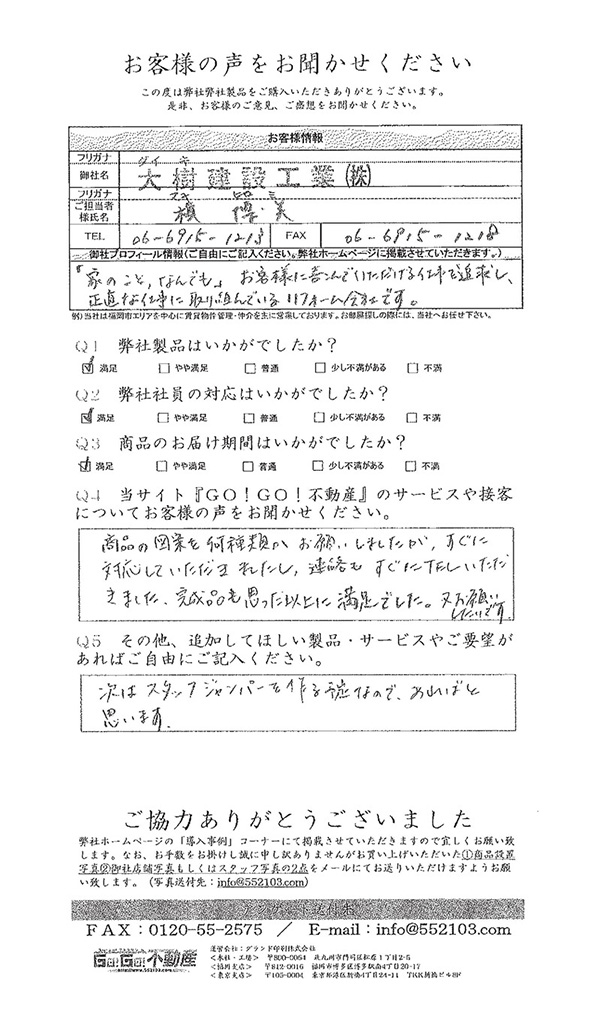 お客様の声をお聞かせください
この度は弊社弊社製品をご購入いただきありがとうございます。
是非、お客様のご意見、ご感想をお聞かせください。
お客様情報
フリガナ ダイキ
御社名 大樹建設工業(株)
フリガナ
ご担当者様氏名
TEL 06-6915-1213 FAX 06-6915-1218
御社プロフィール情報(ご自由にご記入ください。弊社ホームページに掲載させていただきます。)
『家のこと、なんでも』 お客様に喜んでいただける仕事を追求し、
正直な仕事に取り組んでいるリフォーム会社です。
例)当社は福岡市エリアを中心に賃貸物件管理・仲介を主に営業しております。お部屋探しの際には、当社へお任せ下さい。
Q1 弊社製品はいかがでしたか?
☑ 満足 □ やや満足 □ 普通 □ 少し不満がある □ 不満
Q2 弊社社員の対応はいかがでしたか?
☑ 満足 □ やや満足 □ 普通 □ 少し不満がある □ 不満
Q3 商品のお届け期間はいかがでしたか?
☑ 満足 □ やや満足 □ 普通 □ 少し不満がある □ 不満
Q4 当サイト『GO!GO!不動産』のサービスや接客
についてお客様の声をお聞かせください。
商品の図案を何種類かお願いしましたが、すぐに
対応していただきましたし、連絡もすぐに下さいただ
きました、完成品も思った以上に満足でした。又お願い
したいです。
Q5 その他、追加してほしい製品・サービスやご要望が
あればご自由にご記入ください。
次はスタッフジャンパーを作る予定なので、あればと
思います。
ご協力ありがとうございました
弊社ホームページの「導入事例」コーナーにて掲載させていただきますので宜しくお願い致
します。なお、お手数をお掛けし誠に申し訳ありませんがお買い上げいただいた①商品設置
写真②御社店舗写真もしくはスタッフ写真の2点をメールにてお送りいただけますようお願
い致します。(写真送付先:info@552103.com)
FAX:0120-55-2575 / E-mail:info@552103.com
Go!Go!不動産
運営会社:グランド印刷株式会社
<本社・工場> 〒800-0054 北九州市門司区松原1丁目2-5
<福岡支店> 〒812-0016 福岡市博多区博多駅南4丁目20-17
<東京支店> 〒105-0004 東京都港区新橋4丁目24-11 TKK新橋ビル8F